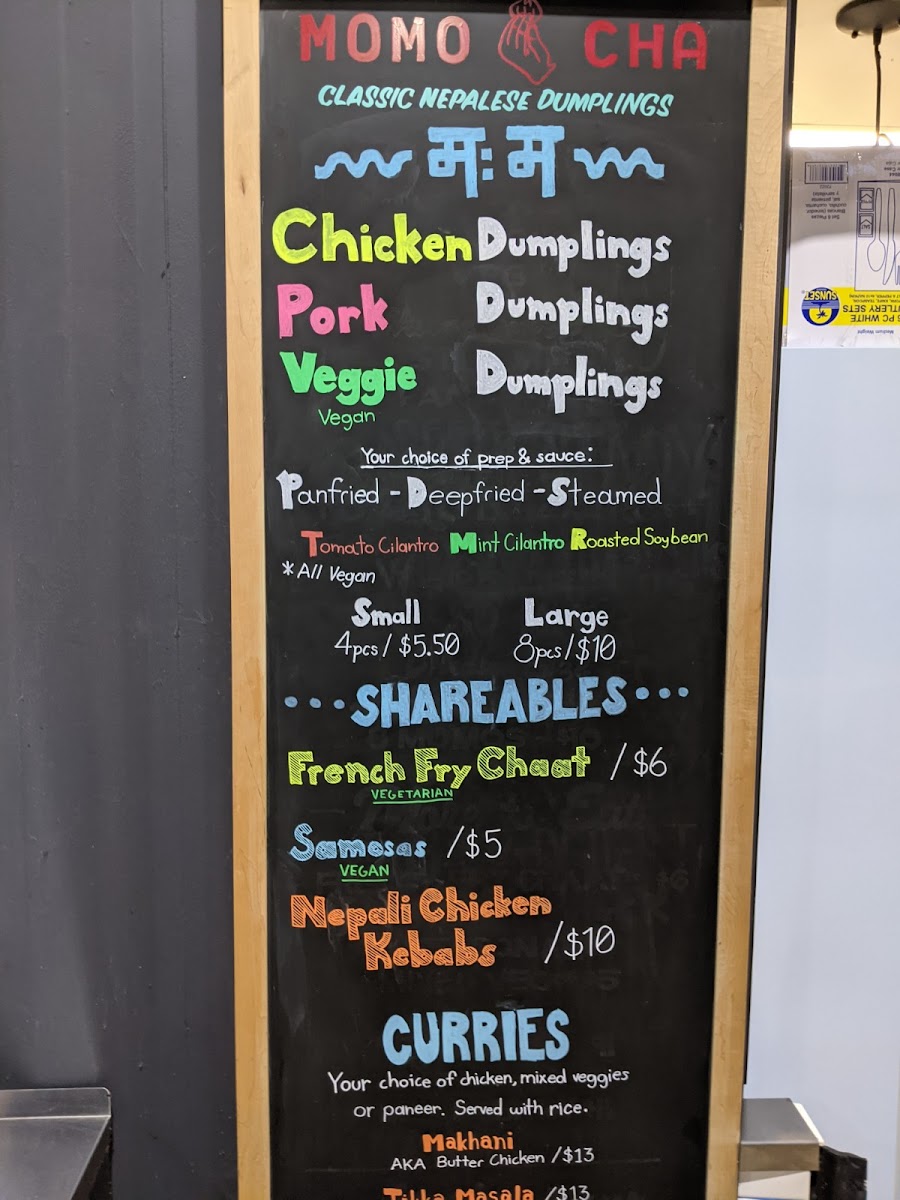 MOMO CHA
CLASSIC NEPALESE DUMPLINGS
म: म
Chicken Dumplings
Pork Dumplings
Veggie Dumplings
Vegan
Your choice of prep & sauce:
Panfried - Deepfried - Steamed
Tomato Cilantro Mint Cilantro Roasted Soybean
*All Vegan
Small Large
4pcs / $5.50 8pcs / $10
SHAREABLES
French Fry Chaat / $6
VEGETARIAN
Samosas / $5
VEGAN
Nepali Chicken
Kebabs / $10
CURRIES
Your choice of chicken, mixed veggies
or paneer. Served with rice.
Makhani
AKA Butter Chicken / $13
Tikka Masala / $13
SUNSET
PC WHITE
TLERY SETS
Medium Weight